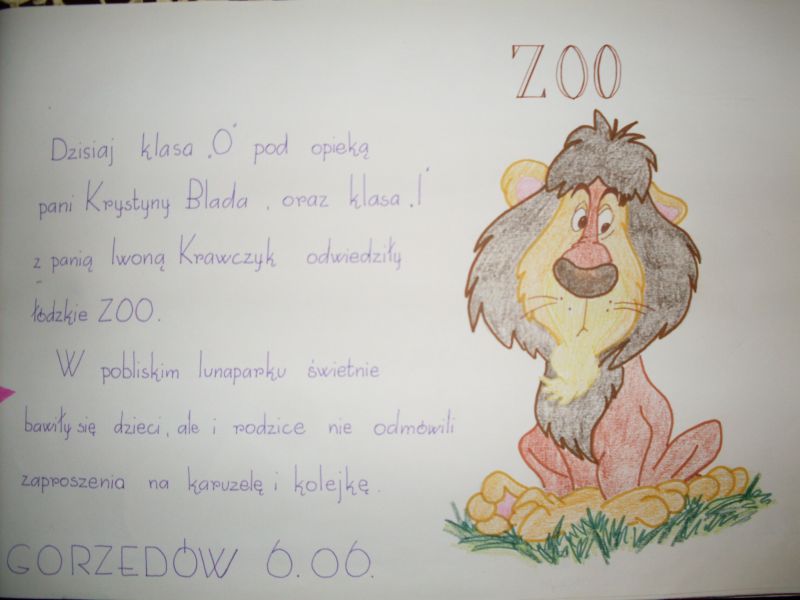 ZOO
Dzisiaj klasa „O" pod opieką
pani Krystyny Blada, oraz klasa „I"
z panią Iwoną Krawczyk odwiedziły
łódzkie ZOO.
W pobliskim lunaparku świetnie
bawiły się dzieci, ale i rodzice nie odmówili
zaproszenia na karuzelę i kolejkę.
GORZĘDÓW 6.06.